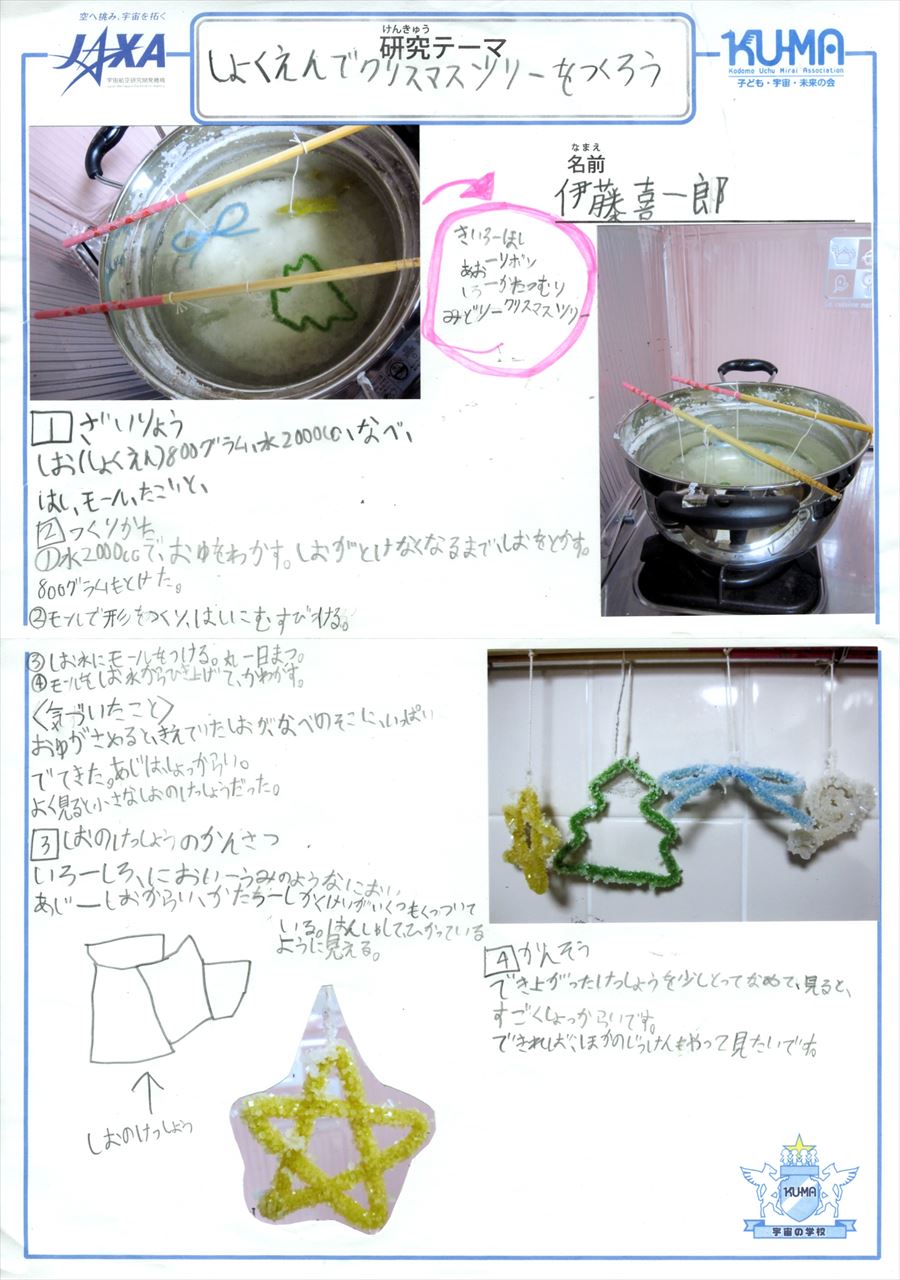 空へ挑み、宇宙を拓く
JAXA
宇宙航空研究開発機構
けんきゅう
研究テーマ
しょくえんでクリスマスツリーをつくろう
KU-MA
Kodomo Uchu Mirai Association
子ども・宇宙・未来の会
なまえ
名前
伊藤喜一郎
きいろーほし
あおーリボン
しろーかたつむり
みどりークリスマスツリー
1 ざいりょう
しお(しょくえん)800グラム、水2000cc、なべ、
はし、モール、たこいと、
2 つくりかた
①水2000ccで、おゆをわかす。しおがとけなくなるまで、しおをとかす。
800グラムもとけた。
②モールで形をつくり、はしにむすびつける。
③しお水にモールをつける。丸一日まつ。
④モールをしお水からひき上げて、かわかす。
〈気づいたこと〉
おゆがさめると、きえていたしおが、なべのそこに、いっぱい
でてきた。あじは、しょっからい。
よく見ると小さなしおのけっしょうだった。
3 しおのけっしょうのかんさつ
いろーしろ、においーうみのようなにおい
あじーしおからい、かたちーしかくけいがいくつもくっついて
いる。はんしゃして、ひかっている
ように見える。
しおのけっしょう
4 かんそう
でき上がったけっしょうを少しとってなめて、見ると、
すごくしょっからいです。
できれば、ほかのじっけんもやって見たいです。
KU-MA
宇宙の学校